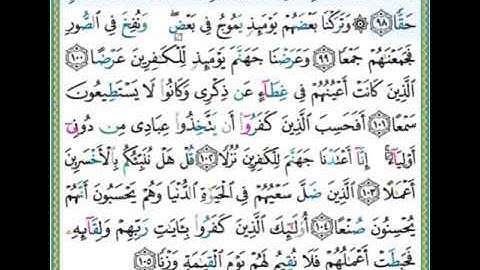 حَقًّا ٩٨ ۞ وَتَرَكْنَا بَعْضَهُمْ يَوْمَئِذٍ يَمُوجُ فِي بَعْضٍ ۖ وَنُفِخَ فِي الصُّورِ
فَجَمَعْنَاهُمْ جَمْعًا ٩٩ وَعَرَضْنَا جَهَنَّمَ يَوْمَئِذٍ لِّلْكَافِرِينَ عَرْضًا ١٠٠
الَّذِينَ كَانَتْ أَعْيُنُهُمْ فِي غِطَاءٍ عَن ذِكْرِي وَكَانُوا لَا يَسْتَطِيعُونَ
سَمْعًا ١٠١ أَفَحَسِبَ الَّذِينَ كَفَرُوا أَن يَتَّخِذُوا عِبَادِي مِن دُونِي
أَوْلِيَاءَ ۚ إِنَّا أَعْتَدْنَا جَهَنَّمَ لِلْكَافِرِينَ نُزُلًا ١٠٢ قُلْ هَلْ نُنَبِّئُكُم بِالْأَخْسَرِينَ
أَعْمَالًا ١٠٣ الَّذِينَ ضَلَّ سَعْيُهُمْ فِي الْحَيَاةِ الدُّنْيَا وَهُمْ يَحْسَبُونَ أَنَّهُمْ
يُحْسِنُونَ صُنْعًا ١٠٤ أُولَٰئِكَ الَّذِينَ كَفَرُوا بِآيَاتِ رَبِّهِمْ وَلِقَائِهِ
فَحَبِطَتْ أَعْمَالُهُمْ فَلَا نُقِيمُ لَهُمْ يَوْمَ الْقِيَامَةِ وَزْنًا ١٠٥